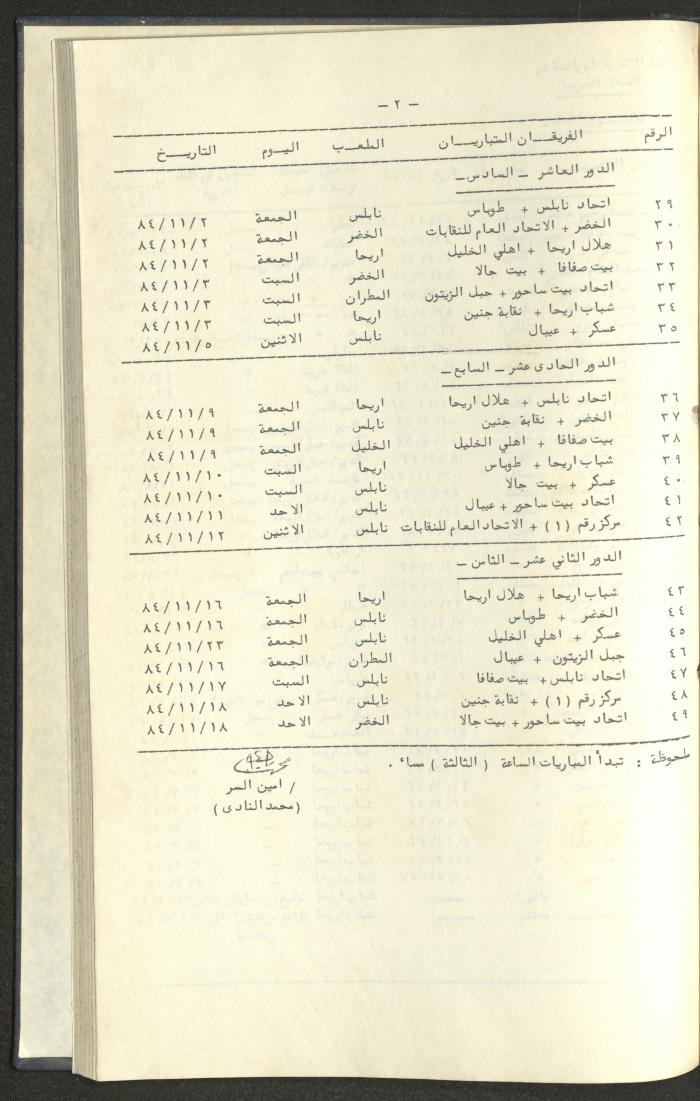 - ٢ -
الرقم الفريقـــان المتباريــــان الملعــب اليــوم التاريــــخ
الدور العاشر ـ السادس ـ
٢٩ اتحاد نابلس + طوباس نابلس الجمعة ٨٤/١١/٢
٣٠ الخضر + الاتحاد العام للنقابات الخضر الجمعة ٨٤/١١/٢
٣١ هلال اريحا + اهلي الخليل اريحا الجمعة ٨٤/١١/٢
٣٢ بيت صفافا + بيت جالا الخضر السبت ٨٤/١١/٣
٣٣ اتحاد بيت ساحور + جبل الزيتون المطران السبت ٨٤/١١/٣
٣٤ شباب اريحا + نقابة جنين اريحا السبت ٨٤/١١/٣
٣٥ عسكر + عيبال نابلس الاثنين ٨٤/١١/٥
الدور الحادى عشر ـ السابع ـ
٣٦ اتحاد نابلس + هلال اريحا اريحا الجمعة ٨٤/١١/٩
٣٧ الخضر + نقابة جنين نابلس الجمعة ٨٤/١١/٩
٣٨ بيت صفافا + اهلي الخليل الخليل الجمعة ٨٤/١١/٩
٣٩ شباب اريحا + طوباس اريحا السبت ٨٤/١١/١٠
٤٠ عسكر + بيت جالا نابلس السبت ٨٤/١١/١٠
٤١ اتحاد بيت ساحور + عيبال نابلس الاحد ٨٤/١١/١١
٤٢ مركز رقم (١) + الاتحاد العام للنقابات نابلس الاثنين ٨٤/١١/١٢
الدور الثاني عشر ـ الثامن ـ
٤٣ شباب اريحا + هلال اريحا اريحا الجمعة ٨٤/١١/١٦
٤٤ الخضر + طوباس نابلس الجمعة ٨٤/١١/١٦
٤٥ عسكر + اهلي الخليل نابلس الجمعة ٨٤/١١/٢٣
٤٦ جبل الزيتون + عيبال المطران الجمعة ٨٤/١١/١٦
٤٧ اتحاد نابلس + بيت صفافا نابلس السبت ٨٤/١١/١٧
٤٨ مركز رقم (١) + نقابة جنين نابلس الاحد ٨٤/١١/١٨
٤٩ اتحاد بيت ساحور + بيت جالا الخضر الاحد ٨٤/١١/١٨
ملحوظة : تبدأ المباريات الساعة (الثالثة) مساء .
/ امين السر
(محمد النادى)